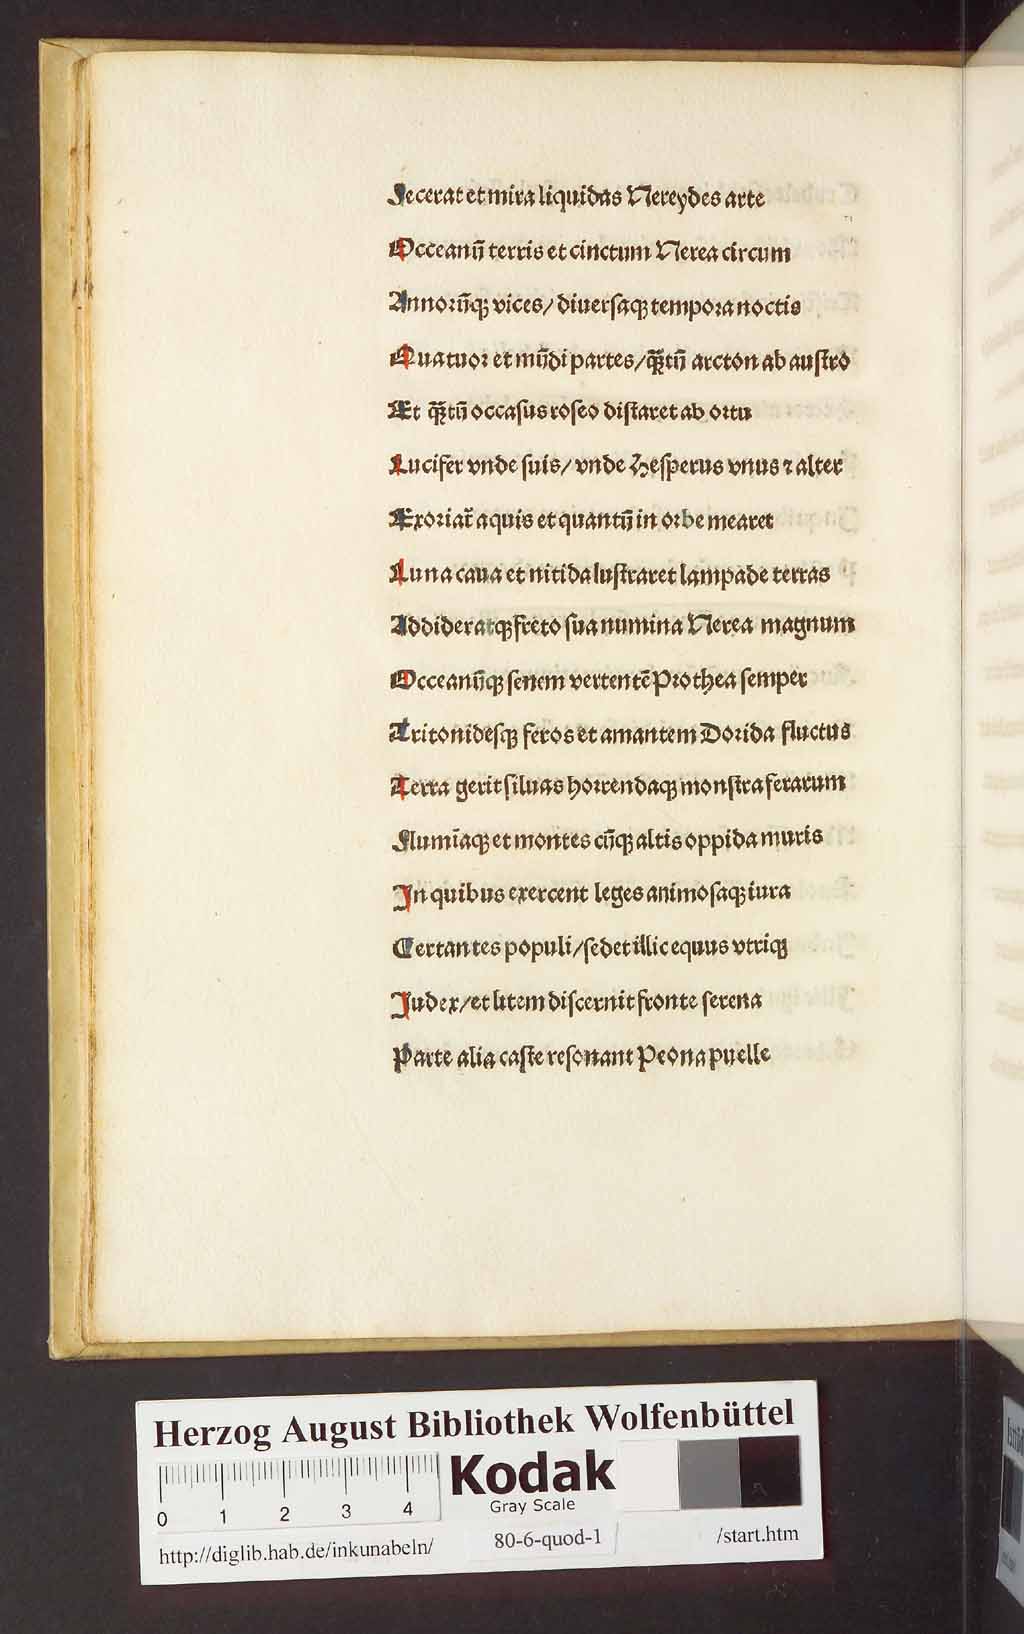 Fecerat et mira liquidas Nereydes arte
Occeanū terris et cinctum Nerea circum
Annorūqꝫ vices/ diuersaqꝫ tempora noctis
Quatuor et mūdi partes/ qᷓꝫtū arcton ab austro
Et qᷓꝫtū occasus roseo distaret ab ortu
Lucifer vnde suis/ vnde Hesperus vnus ⁊ alter
Exoriat᷑ aquis et quantū in orbe mearet
Luna caua et nitida lustraret lampade terras
Addideratqꝫ freto sua numina Nerea magnum
Occeanūqꝫ senem vertentē Prothea semper
Tritonidesqꝫ feros et amantem Dorida fluctus
Terra gerit siluas horrendaqꝫ monstra ferarum
Flumīaqꝫ et montes cūqꝫ altis oppida muris
In quibus exercent leges animosaqꝫ iura
Certantes populi/ sedet illic equus vtriqꝫ
Judex/ et litem discernit fronte serena
Parte alia caste resonant Peona puelle
Herzog August Bibliothek Wolfenbüttel
Kodak
Gray Scale
0 1 2 3 4
http://diglib.hab.de/inkunabeln/ 80-6-quod-1 /start.htm